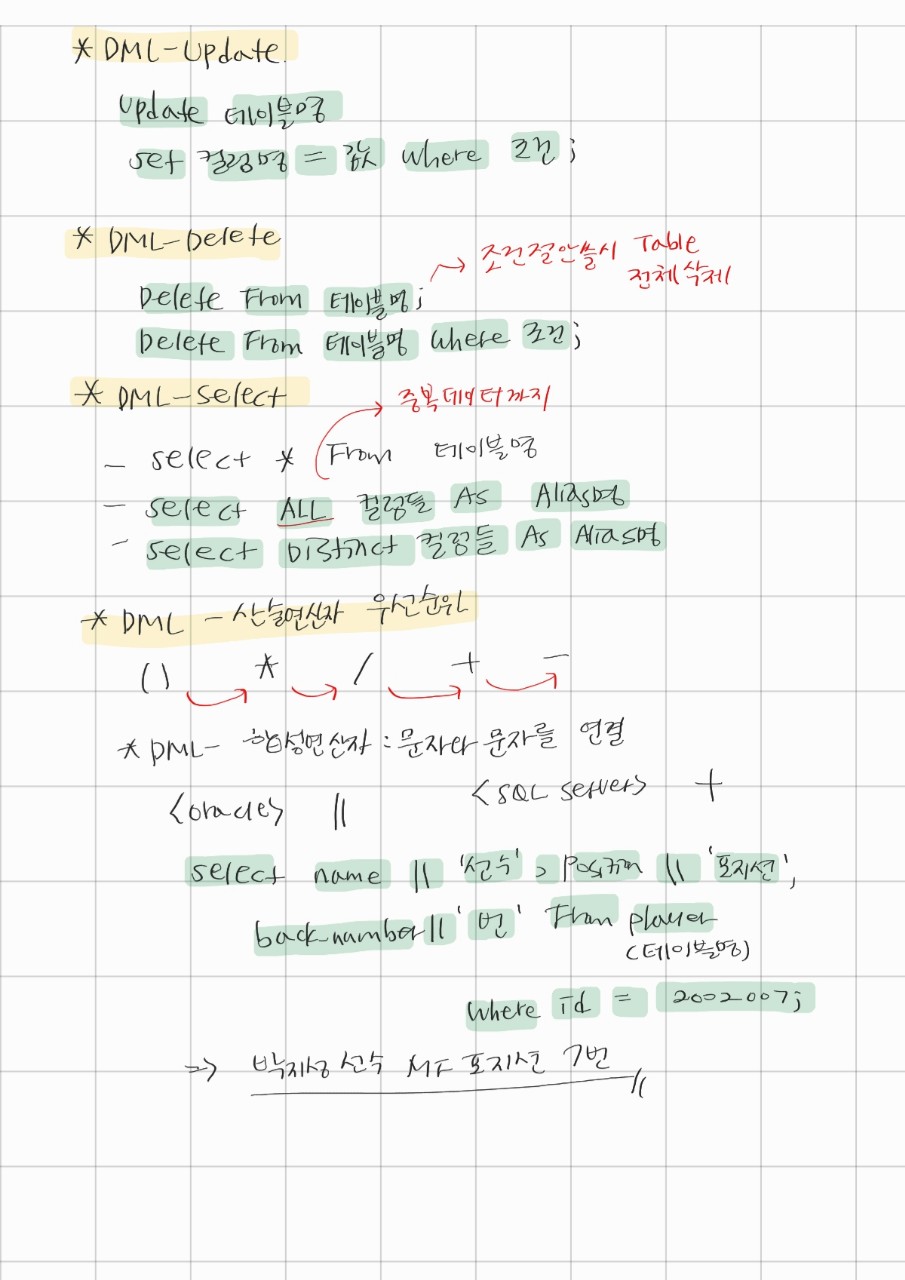 * DML-Update
Update 테이블명
set 컬럼명 = 값 where 조건;
* DML-Delete
→ 조건절안쓸시 Table
전체삭제
Delete From 테이블명;
Delete From 테이블명 where 조건;
* DML-Select
→ 중복데이터까지
- select * From 테이블명
- select ALL 컬럼들 As Alias명
- select Distinct 컬럼들 As Alias명
* DML - 산술연산자 우선순위
() → * → / → + → -
* DML- 합성연산자 : 문자와 문자를 연결
<oracle> || <SQL server> +
select name || '선수', position || '포지션',
back_number || '번' From player
(테이블명)
where id = 2002007;
=> 박지성 선수 MF 포지션 7번